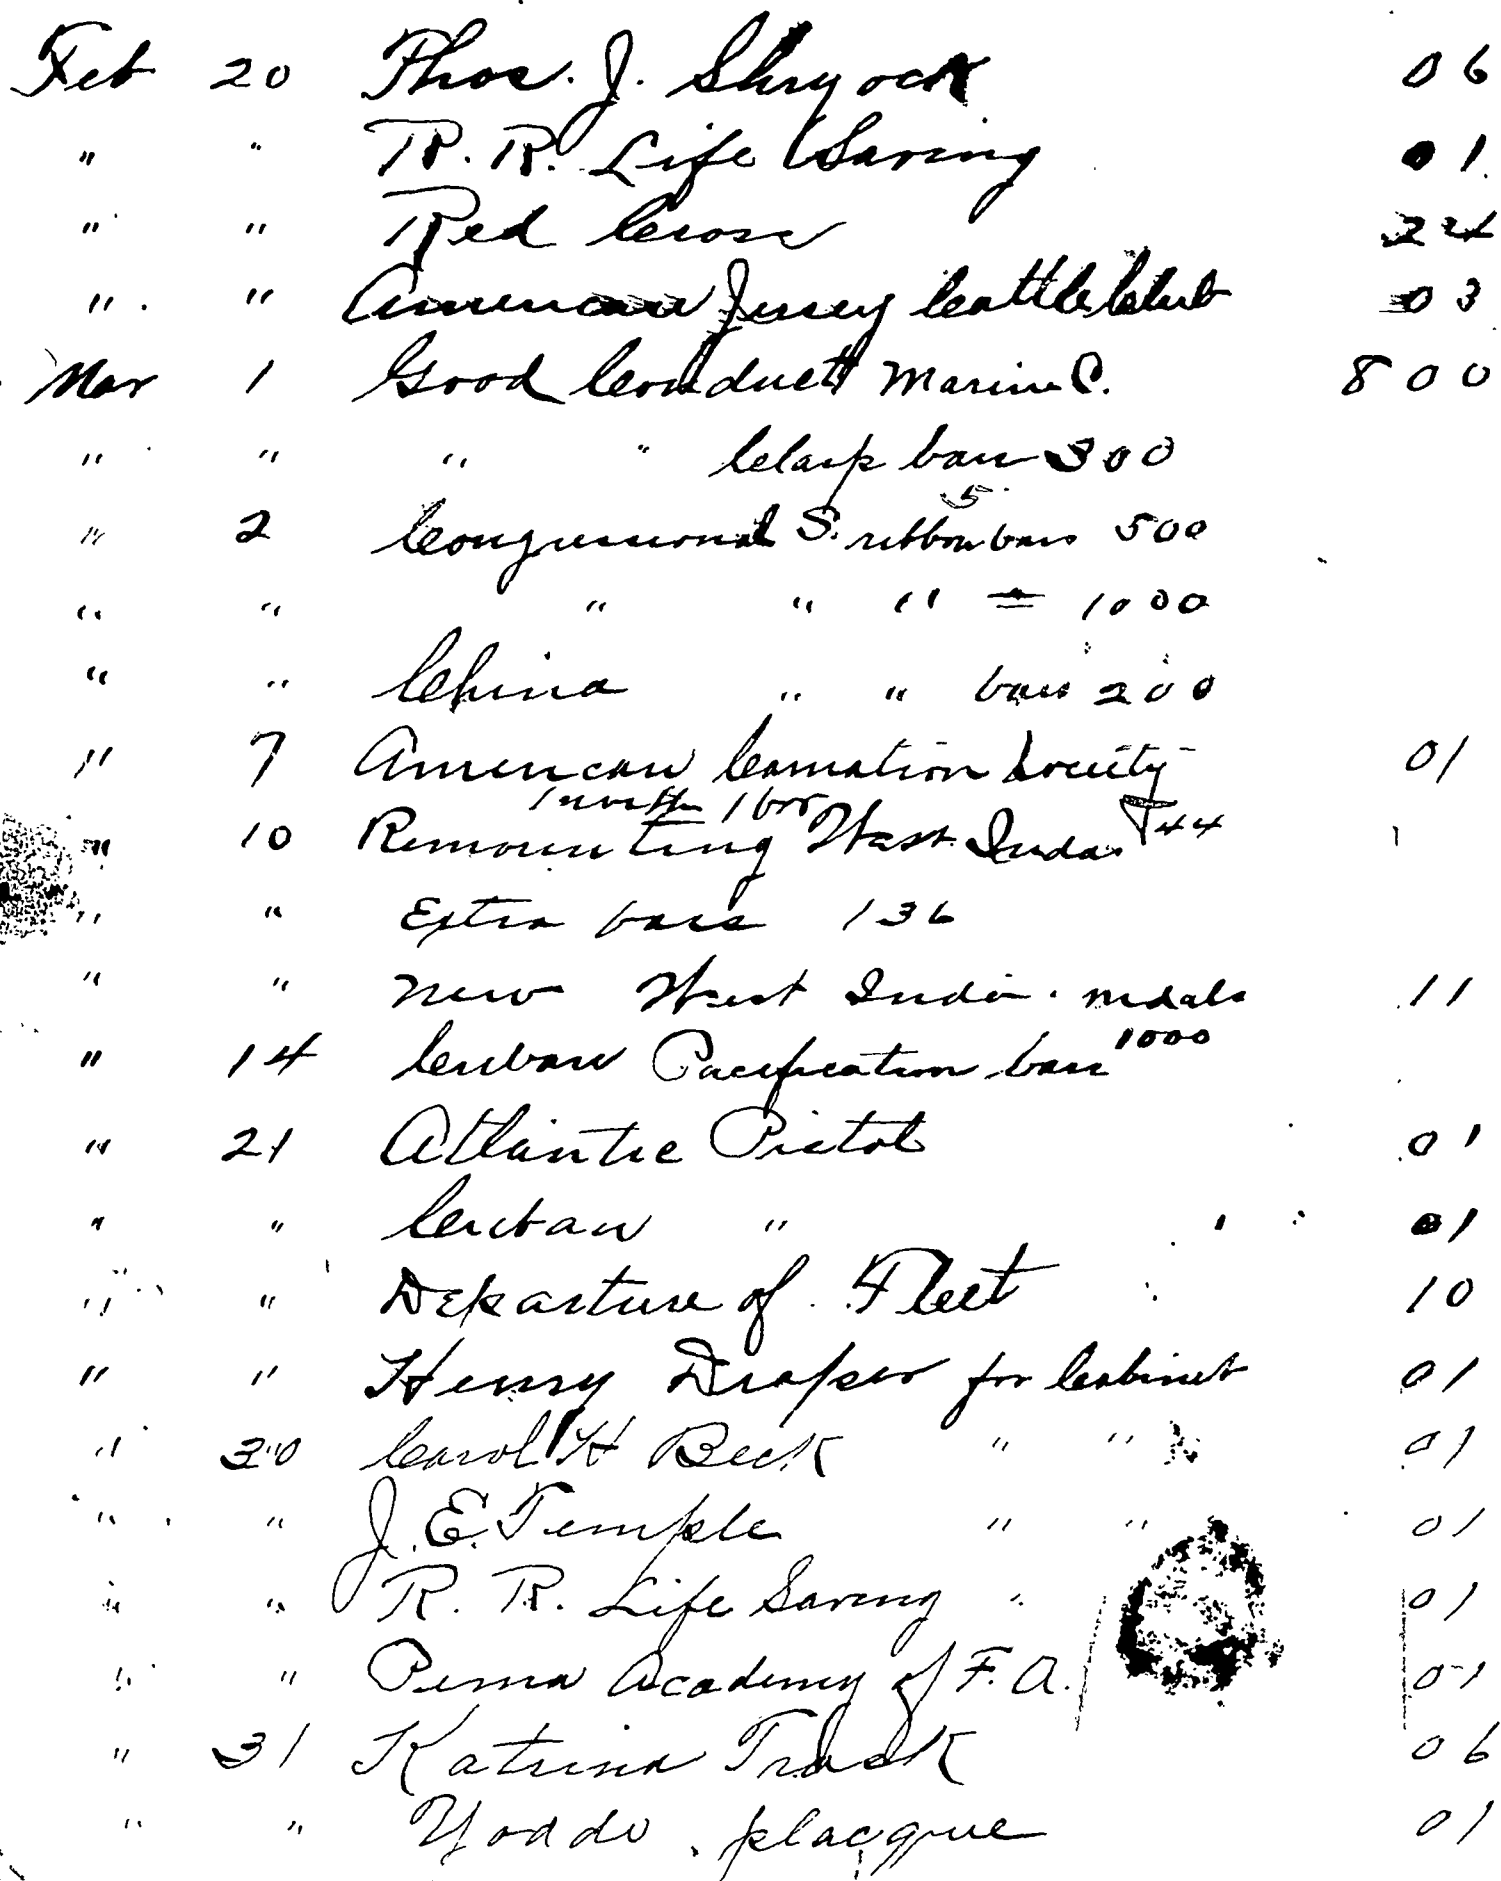 Feb 20 Thos. J. Shryock 06
" " R. R. Life Saving 01
" " Red Cross 24
" " American Jersey Cattle Club 03
Mar 1 Good Conduct Marine C. 800
" " " " Clasp bars 300
" 2 Congressional S. ribbon bars 500
" " " " " = 1000
" " China " " bars 200
" 7 American Carnation Society 01
" 10 Remounting West Indas 44
" " Extra bars 136
" " New West India. medals 11
" 14 Cuban Pacification bars 1000
" 21 Atlantic Pistol 01
" " Cuban " 01
" " Departure of Fleet 10
" " Henry Draper for Cabinet 01
" 30 Carol H Beck " " 01
" " J. E. Temple " " 01
" " R. R. Life Saving " 01
" " Penna Academy of F. A. 01
" 31 Katrina Trask 06
" " Yaddo placque 01